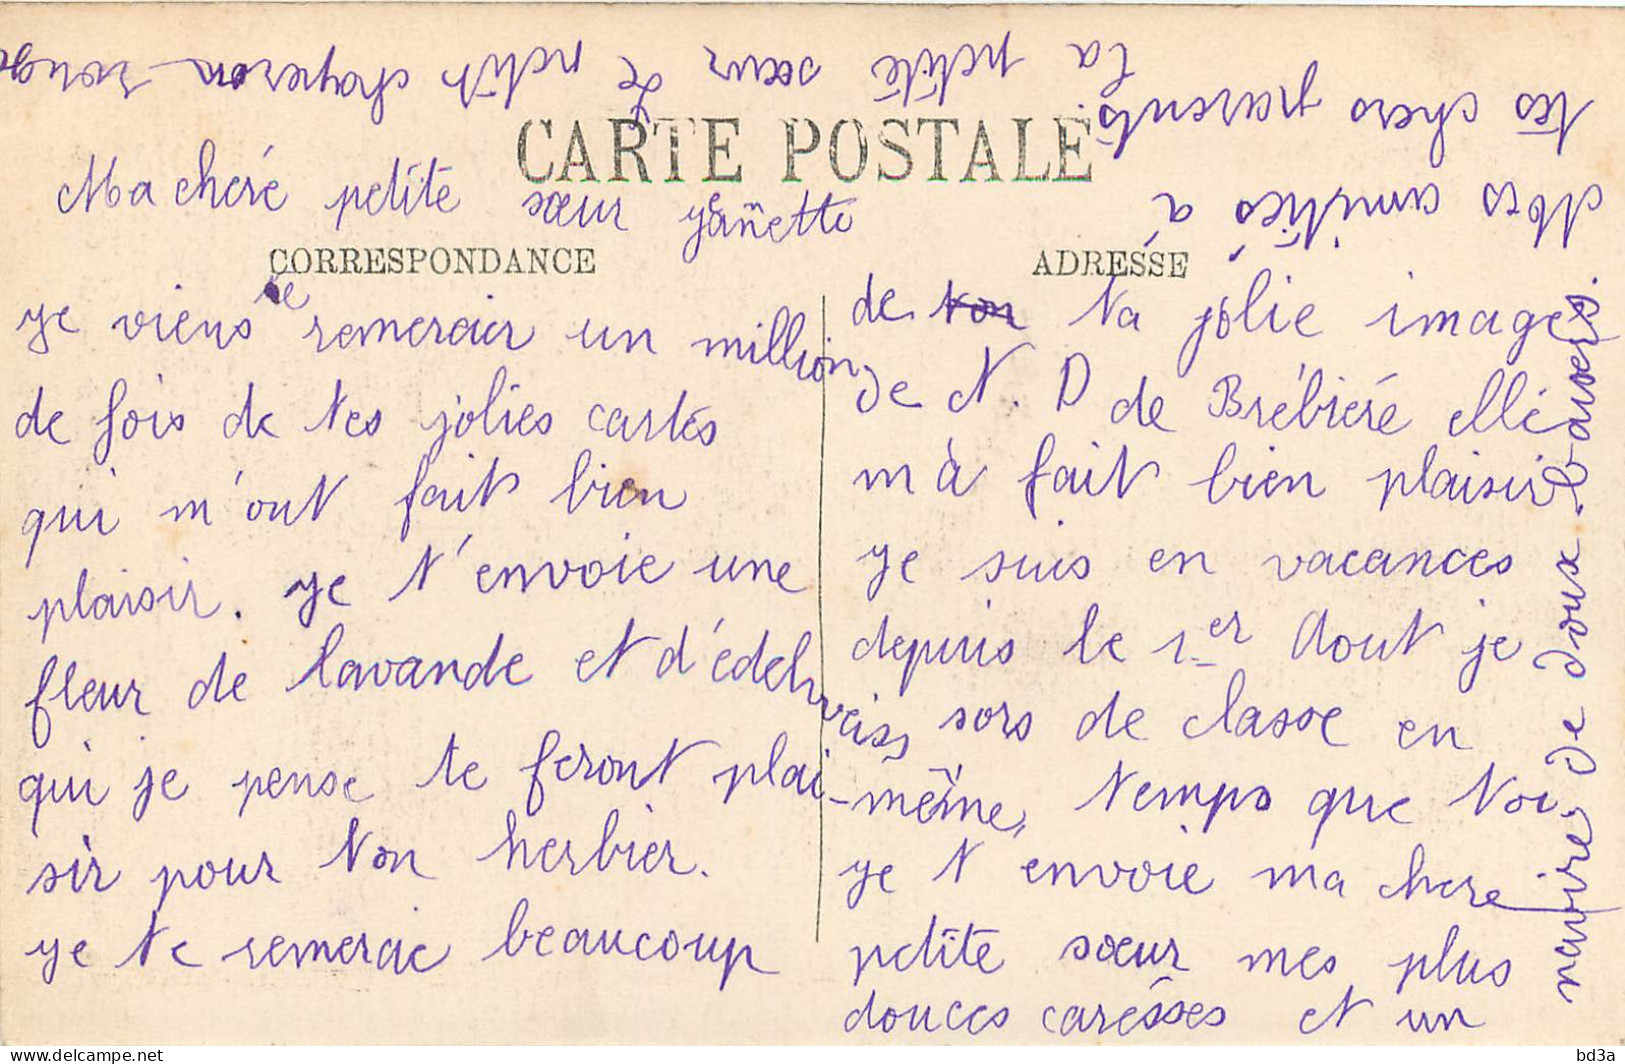 CARTE POSTALE
Ma cheré petite sœur Jeannette
CORRESPONDANCE
je viens te remercier un million
de fois de tes jolies cartés
qui m'ont fait bien
plaisir. je t'envoie une
fleur de lavande et d'édelweiss
qui je pense te feront plai-
sir pour ton herbier.
je te remercie beaucoup
ADRESSE
de ton ta jolie image
de N. D de Brébiéré ellé
m'à fait bien plaisir
je suis en vacances
depuis le 1er Aout je
sors de classe en
même temps que toi
je t'envoie ma chere
petite sœur mes plus
douces caresses et un
navire de doux baisers.
Mes amitiés à
tes chers parents.
La petite sœur
Le petit chaperon rouge